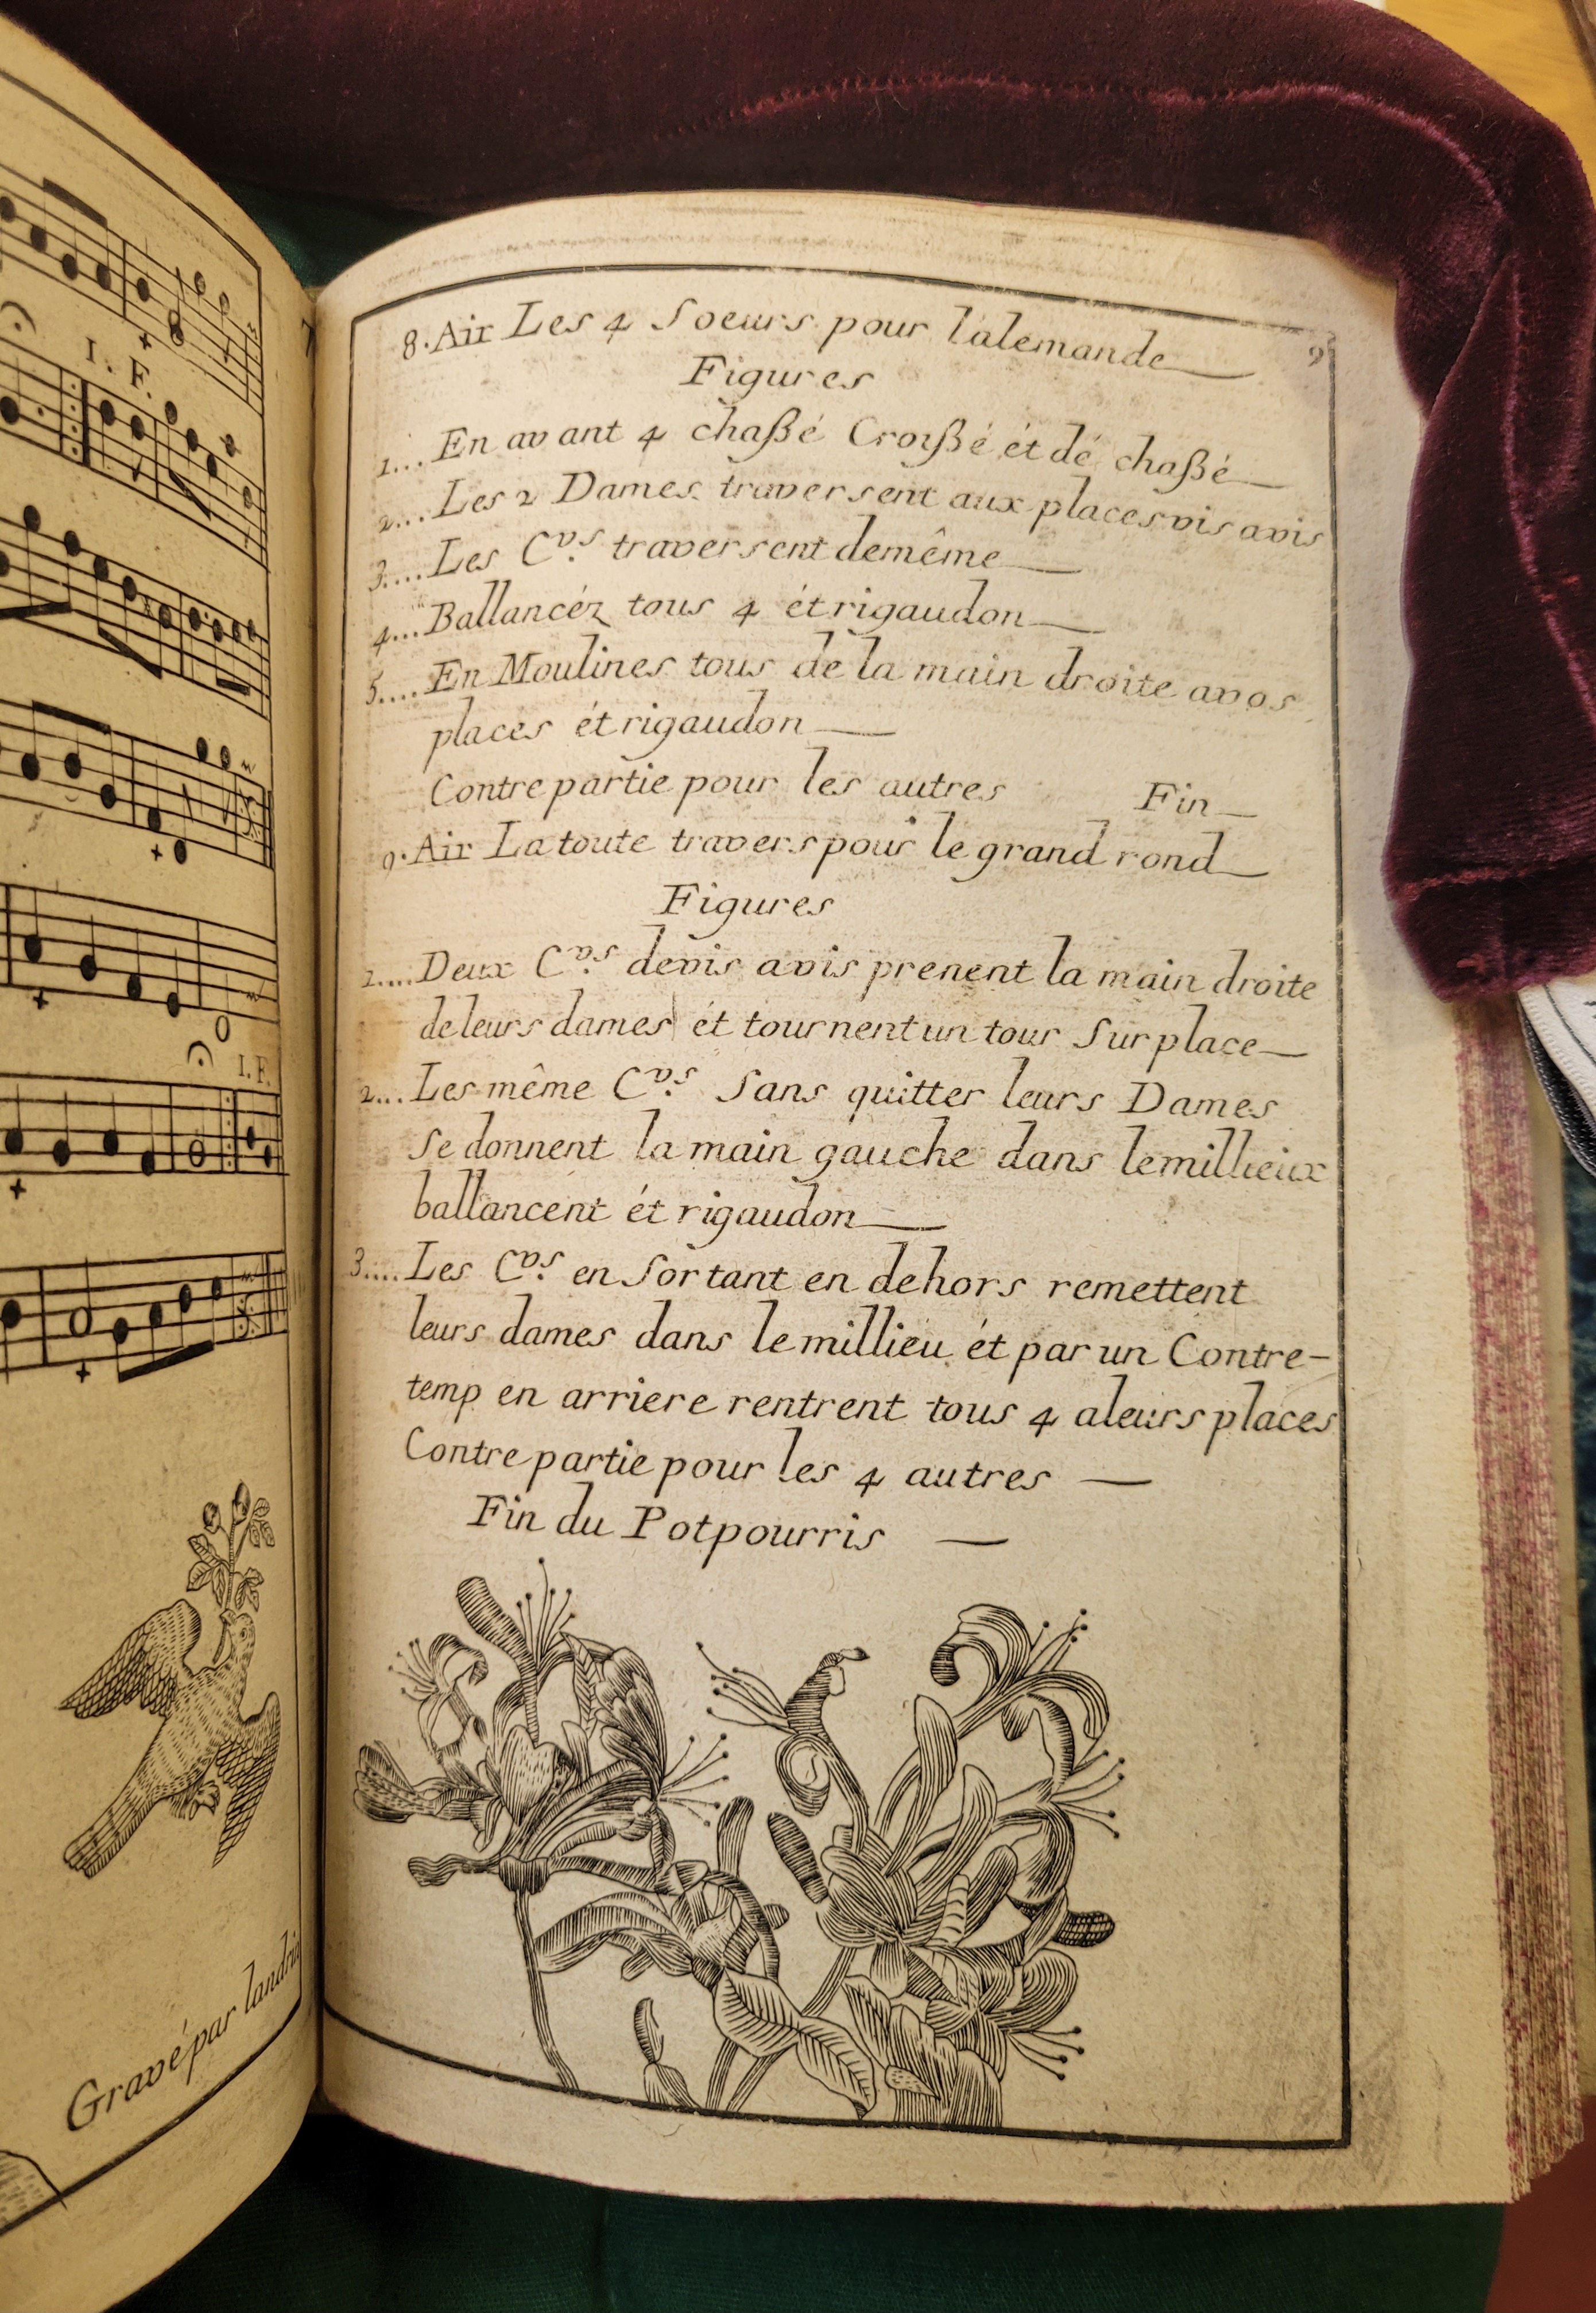 I. F.
I. F.
Gravé par
8. Air Les 4 Soeurs pour l'alemande
9
Figures
1... En avant 4 chaßé Croißé ét dé chaßé
2... Les 2 Dames traversent aux places vis avis
3.... Les C.vs traversent demême
4... Ballancéz tous 4 ét rigaudon
5.... En Moulines tous de la main droite avos
places ét rigaudon
Contre partie pour les autres Fin
9. Air La toute travers pour le grand rond
Figures
1.... Deux C.vs devis avis prenent la main droite
de leurs dames ét tournent un tour Sur place
2... Les même C.vs Sans quitter leurs Dames
Se donnent la main gauche dans le millieux
ballancent ét rigaudon
3.... Les C.vs en Sortant en dehors remettent
leurs dames dans le millieu ét par un Contre-
temp en arriere rentrent tous 4 aleurs places
Contre partie pour les 4 autres
Fin du Potpourris